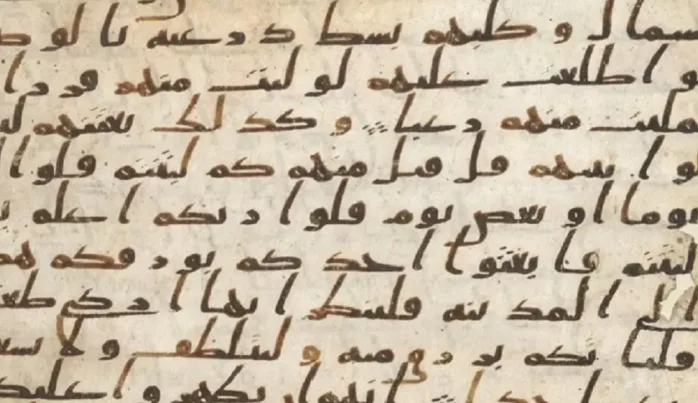 لشمال و كلبهم بسط ذرعيه بالوص
و اطلعت عليهم لوليت منهم فررا
ملئت منهم رعبا و كذلك بعثنهم لي
لوا بينهم قل قيل منهم كم لبثتم قلوا ا
يوما او بعض يوم قلوا ربكم اعلم ب
لبثتم فابعثوا احدكم بورقكم هذ
الى المدينه فلينظر ايها ازكى طع
فليأتكم برزق منه و ليتلطف و لا يشع
احدا انهم ان يظهروا عليكم